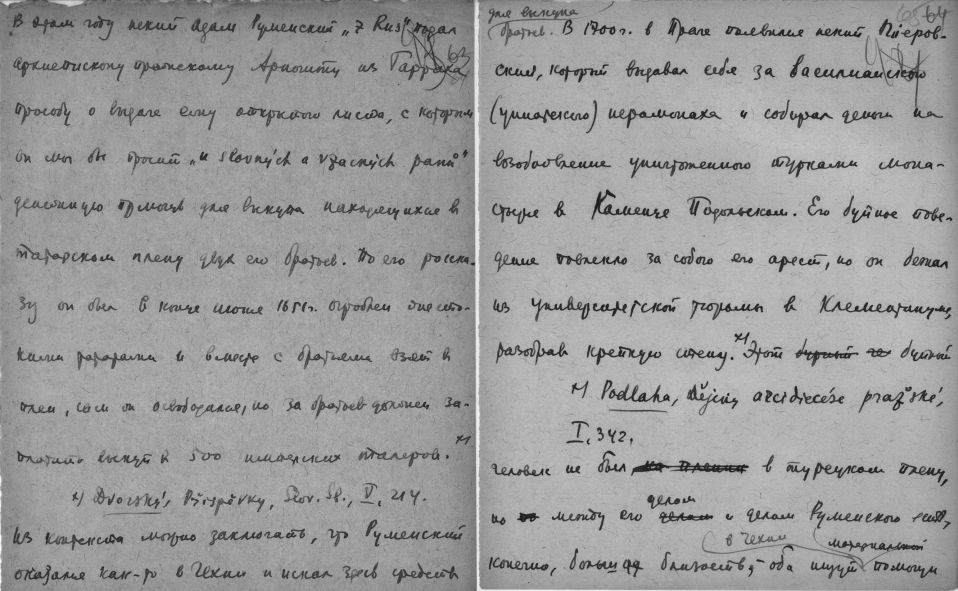 В этом году некий Адам Руменский „z Rus" подал
63
архиепископу пражскому Арношту из Гарраха
просьбу о выдаче ему открытого листа, с которым
он мог бы просить „u slovných a vzácných pánů"
денежную помощь для выкупа находящихся в
татарском плену двух его братьев. По его расска-
зу он был в конце июня 1651г. ограблен
татарами и вместе с братьями взят в
плен, сам он освободился, но за братьев должен за-
платить выкуп в 500 имперских талеров. x)
x) Dvorský, Příspěvky, Slov. Sb., V, 214.
Из контекста можно заключать, что Руменский
оказался как-то в Чехии и искал здесь средств
для выкупа
64
братьев. В 1700г. в Праге появился некий Пиеров-
ский, который выдавал себя за василианского
(униатского) иеромонаха и собирал деньги на
возобновление уничтоженного турками мона-
стыря в Каменце Подольском. Его буйное пове-
дение повлекло за собою его арест, но он бежал
из университетской тюрьмы в Клементинуме,
разобрав крепкую стену. x) Этот буйный
x) Podlaha, Dějiny arcidiecése pražské,
I, 342.
человек не был на пленил в турецком плену,
делом
но между его делом и делом Руменского есть,
в Чехии материальной
конечно, большая близость, оба ищут помощи